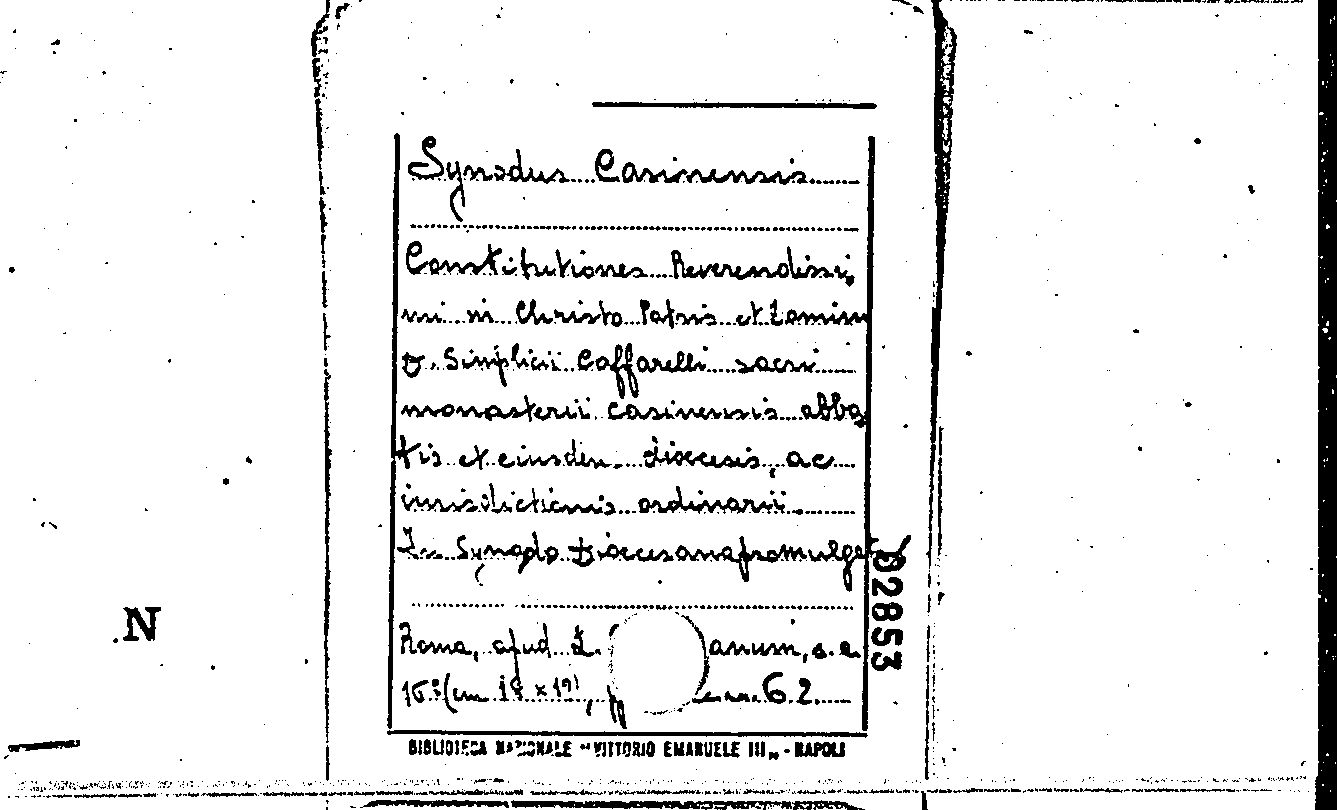 Synodus Casinensis
Constitutiones Reverendissi,
mi in Christo Patris et Domini
D. Simplicii Caffarelli sacri
monasterii casinensis abba
tis et eiusdem diocesis, ac
iurisdictionis ordinarii.
In Synodo Dioecesana promulgat
Roma, apud Z. anum, s.a.
16:(cm 18 x 19), 62.
BIBLIOTECA NAZIONALE "VITTORIO EMANUELE III„ - NAPOLI
02853
N